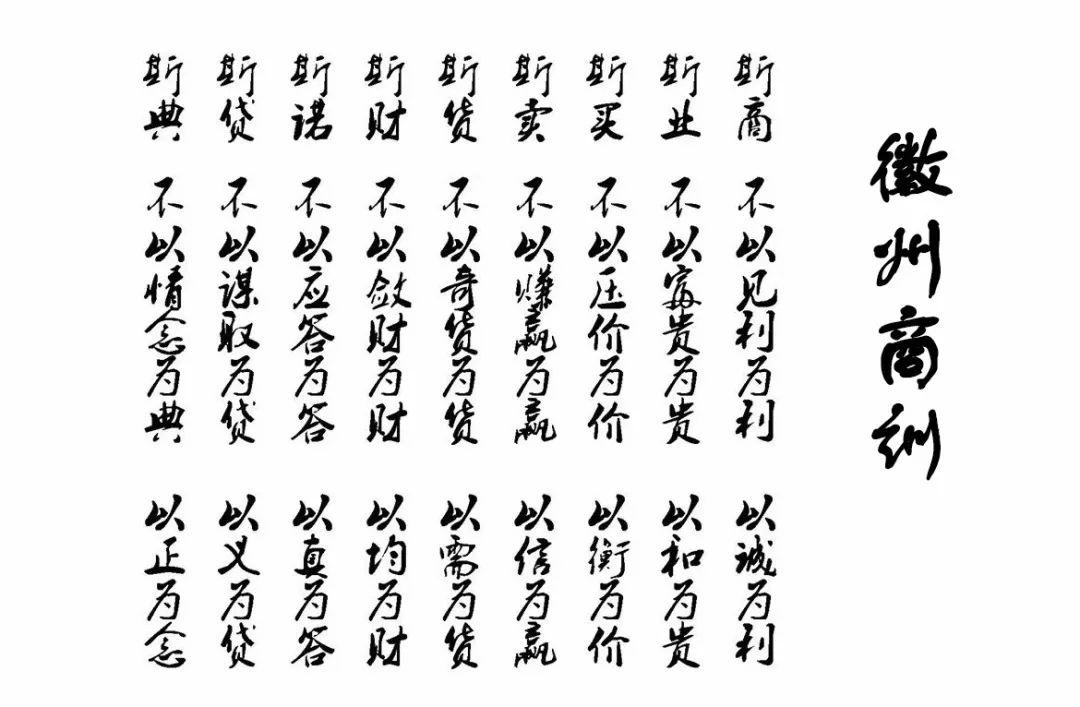 徽州商训
斯商 不以见利为利 以诚为利
斯业 不以富贵为贵 以和为贵
斯买 不以压价为价 以衡为价
斯卖 不以赚赢为赢 以信为赢
斯货 不以奇货为货 以需为货
斯财 不以敛财为财 以均为财
斯诺 不以应答为答 以真为答
斯贷 不以谋取为贷 以义为贷
斯典 不以情念为典 以正为念